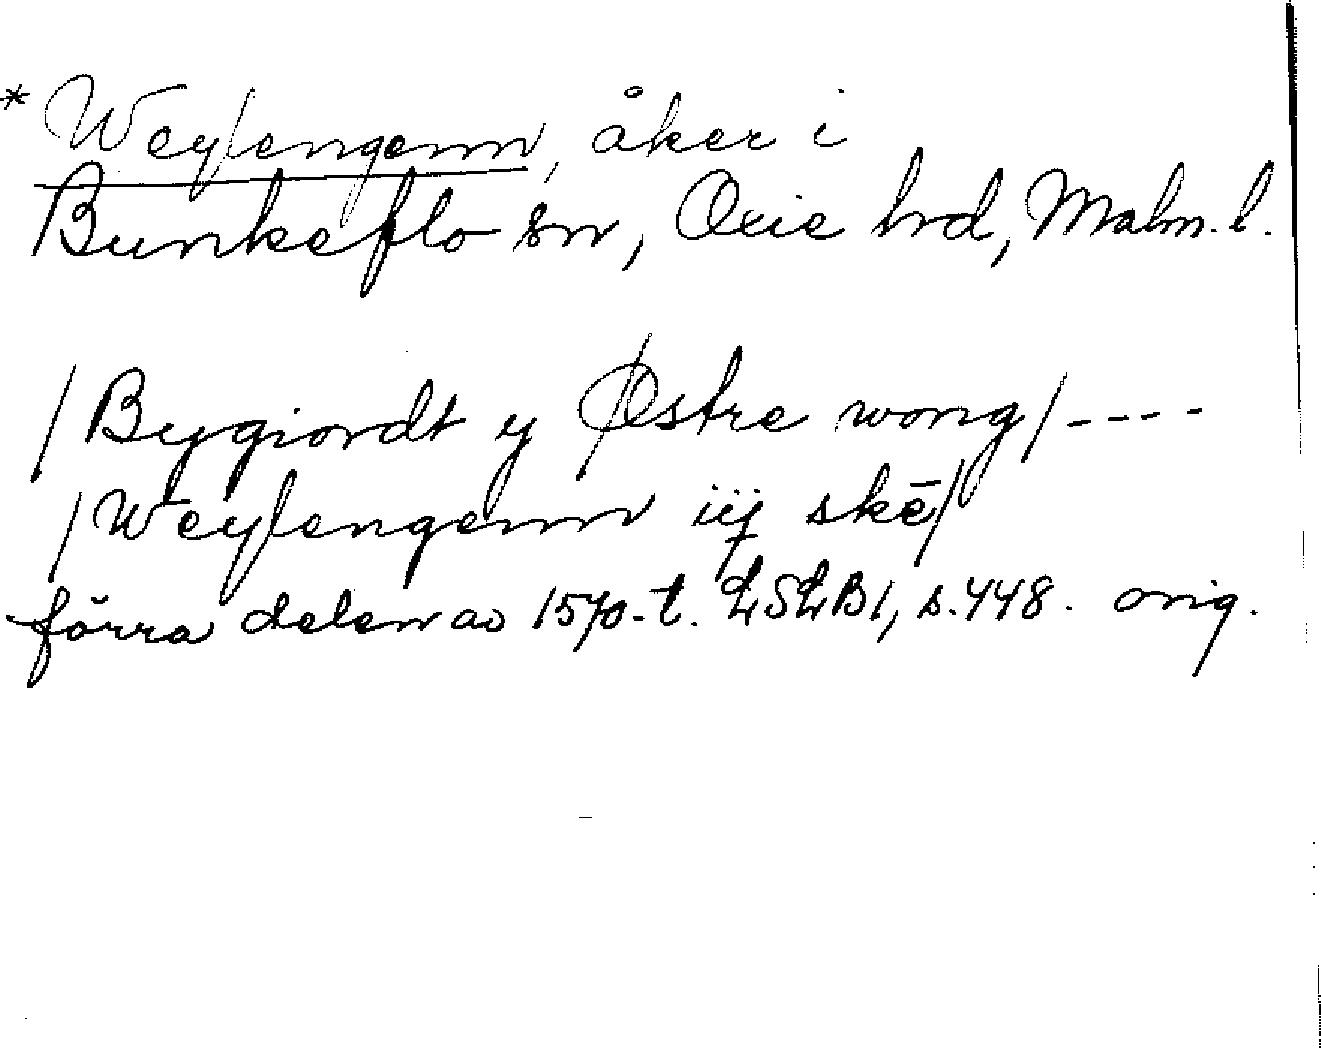 * Weylengenn, åker i
Bunkeflo sn, Oxie hrd, Malm. l.
/Bygiordt y Østre wong/----
/Weylengenn iij skē/
förra delen av 1570-t. LSLB 1, s. 448. orig.